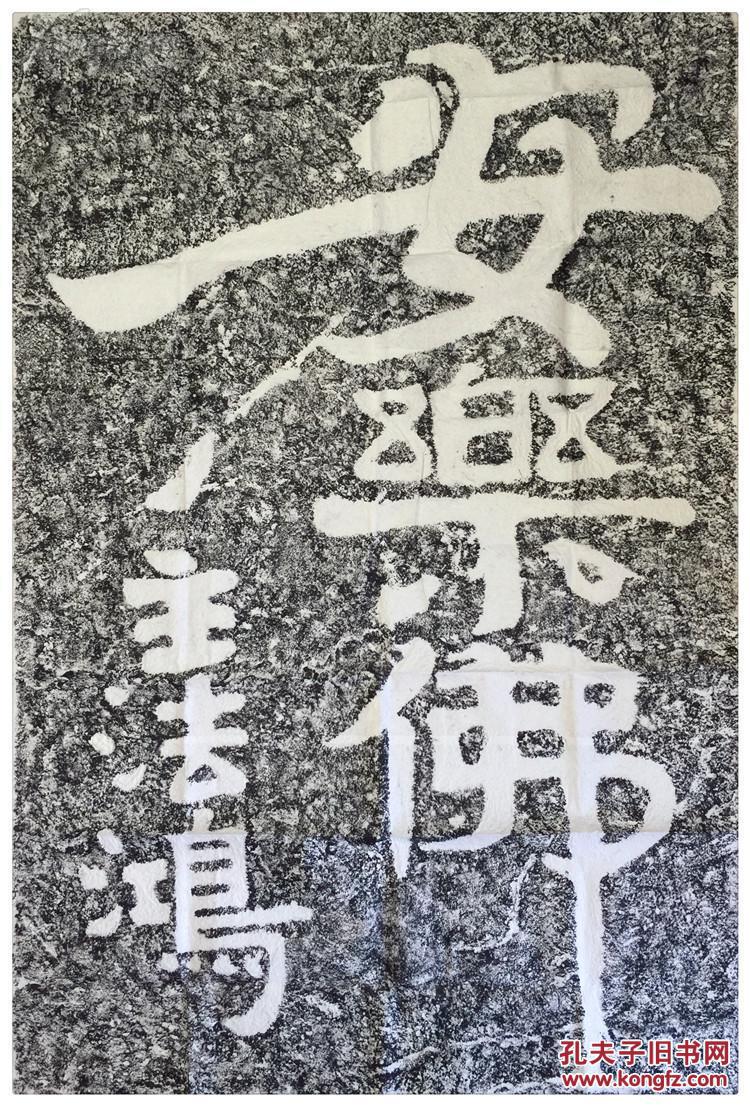 安樂佛
主法鴻
孔夫子旧书网
www.kongfz.com